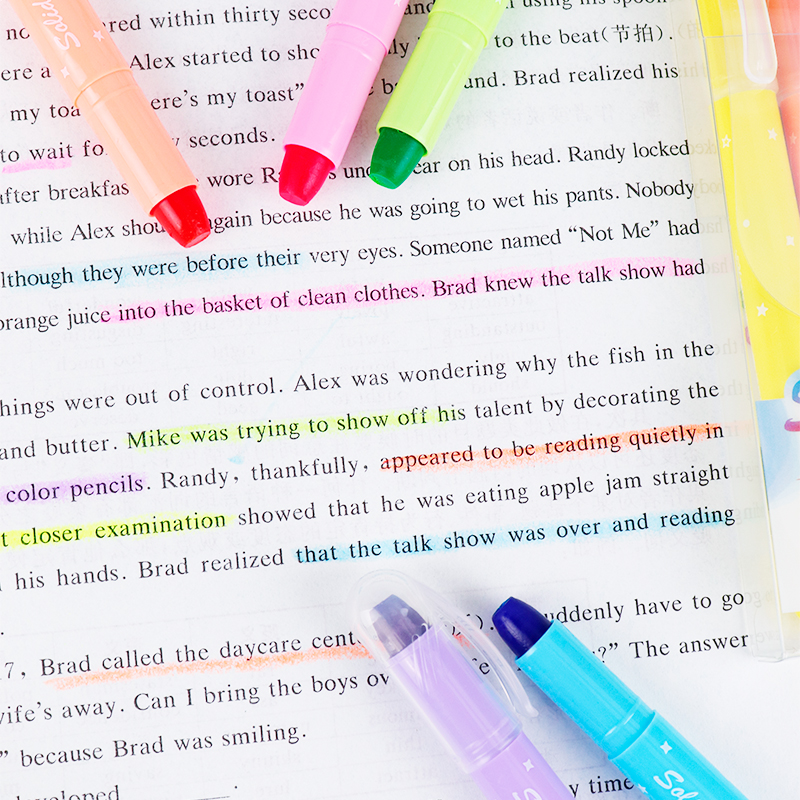 ered within thirty using his spoon
ere a Alex started to to the beat(节拍).
my toast ere's my toast" and. Brad realized his
to wait seconds.
after breakfas wore on his head. Randy locked
while Alex again because he was going to wet his pants. Nobody
lthough they were before their very eyes. Someone named "Not Me" had
orange juice into the basket of clean clothes. Brad knew the talk show had
hings were out of control. Alex was wondering why the fish in the
and butter. Mike was trying to show off his talent by decorating the
color pencils. Randy, thankfully, appeared to be reading quietly in
t closer examination showed that he was eating apple jam straight
his hands. Brad realized that the talk show was over and reading
.
7, Brad called the daycare cent uddenly have to go
vife's away. Can I bring the boys ov ?" The answer
" because Brad was smiling.
developed ____.
y time
Solid
Sol
S